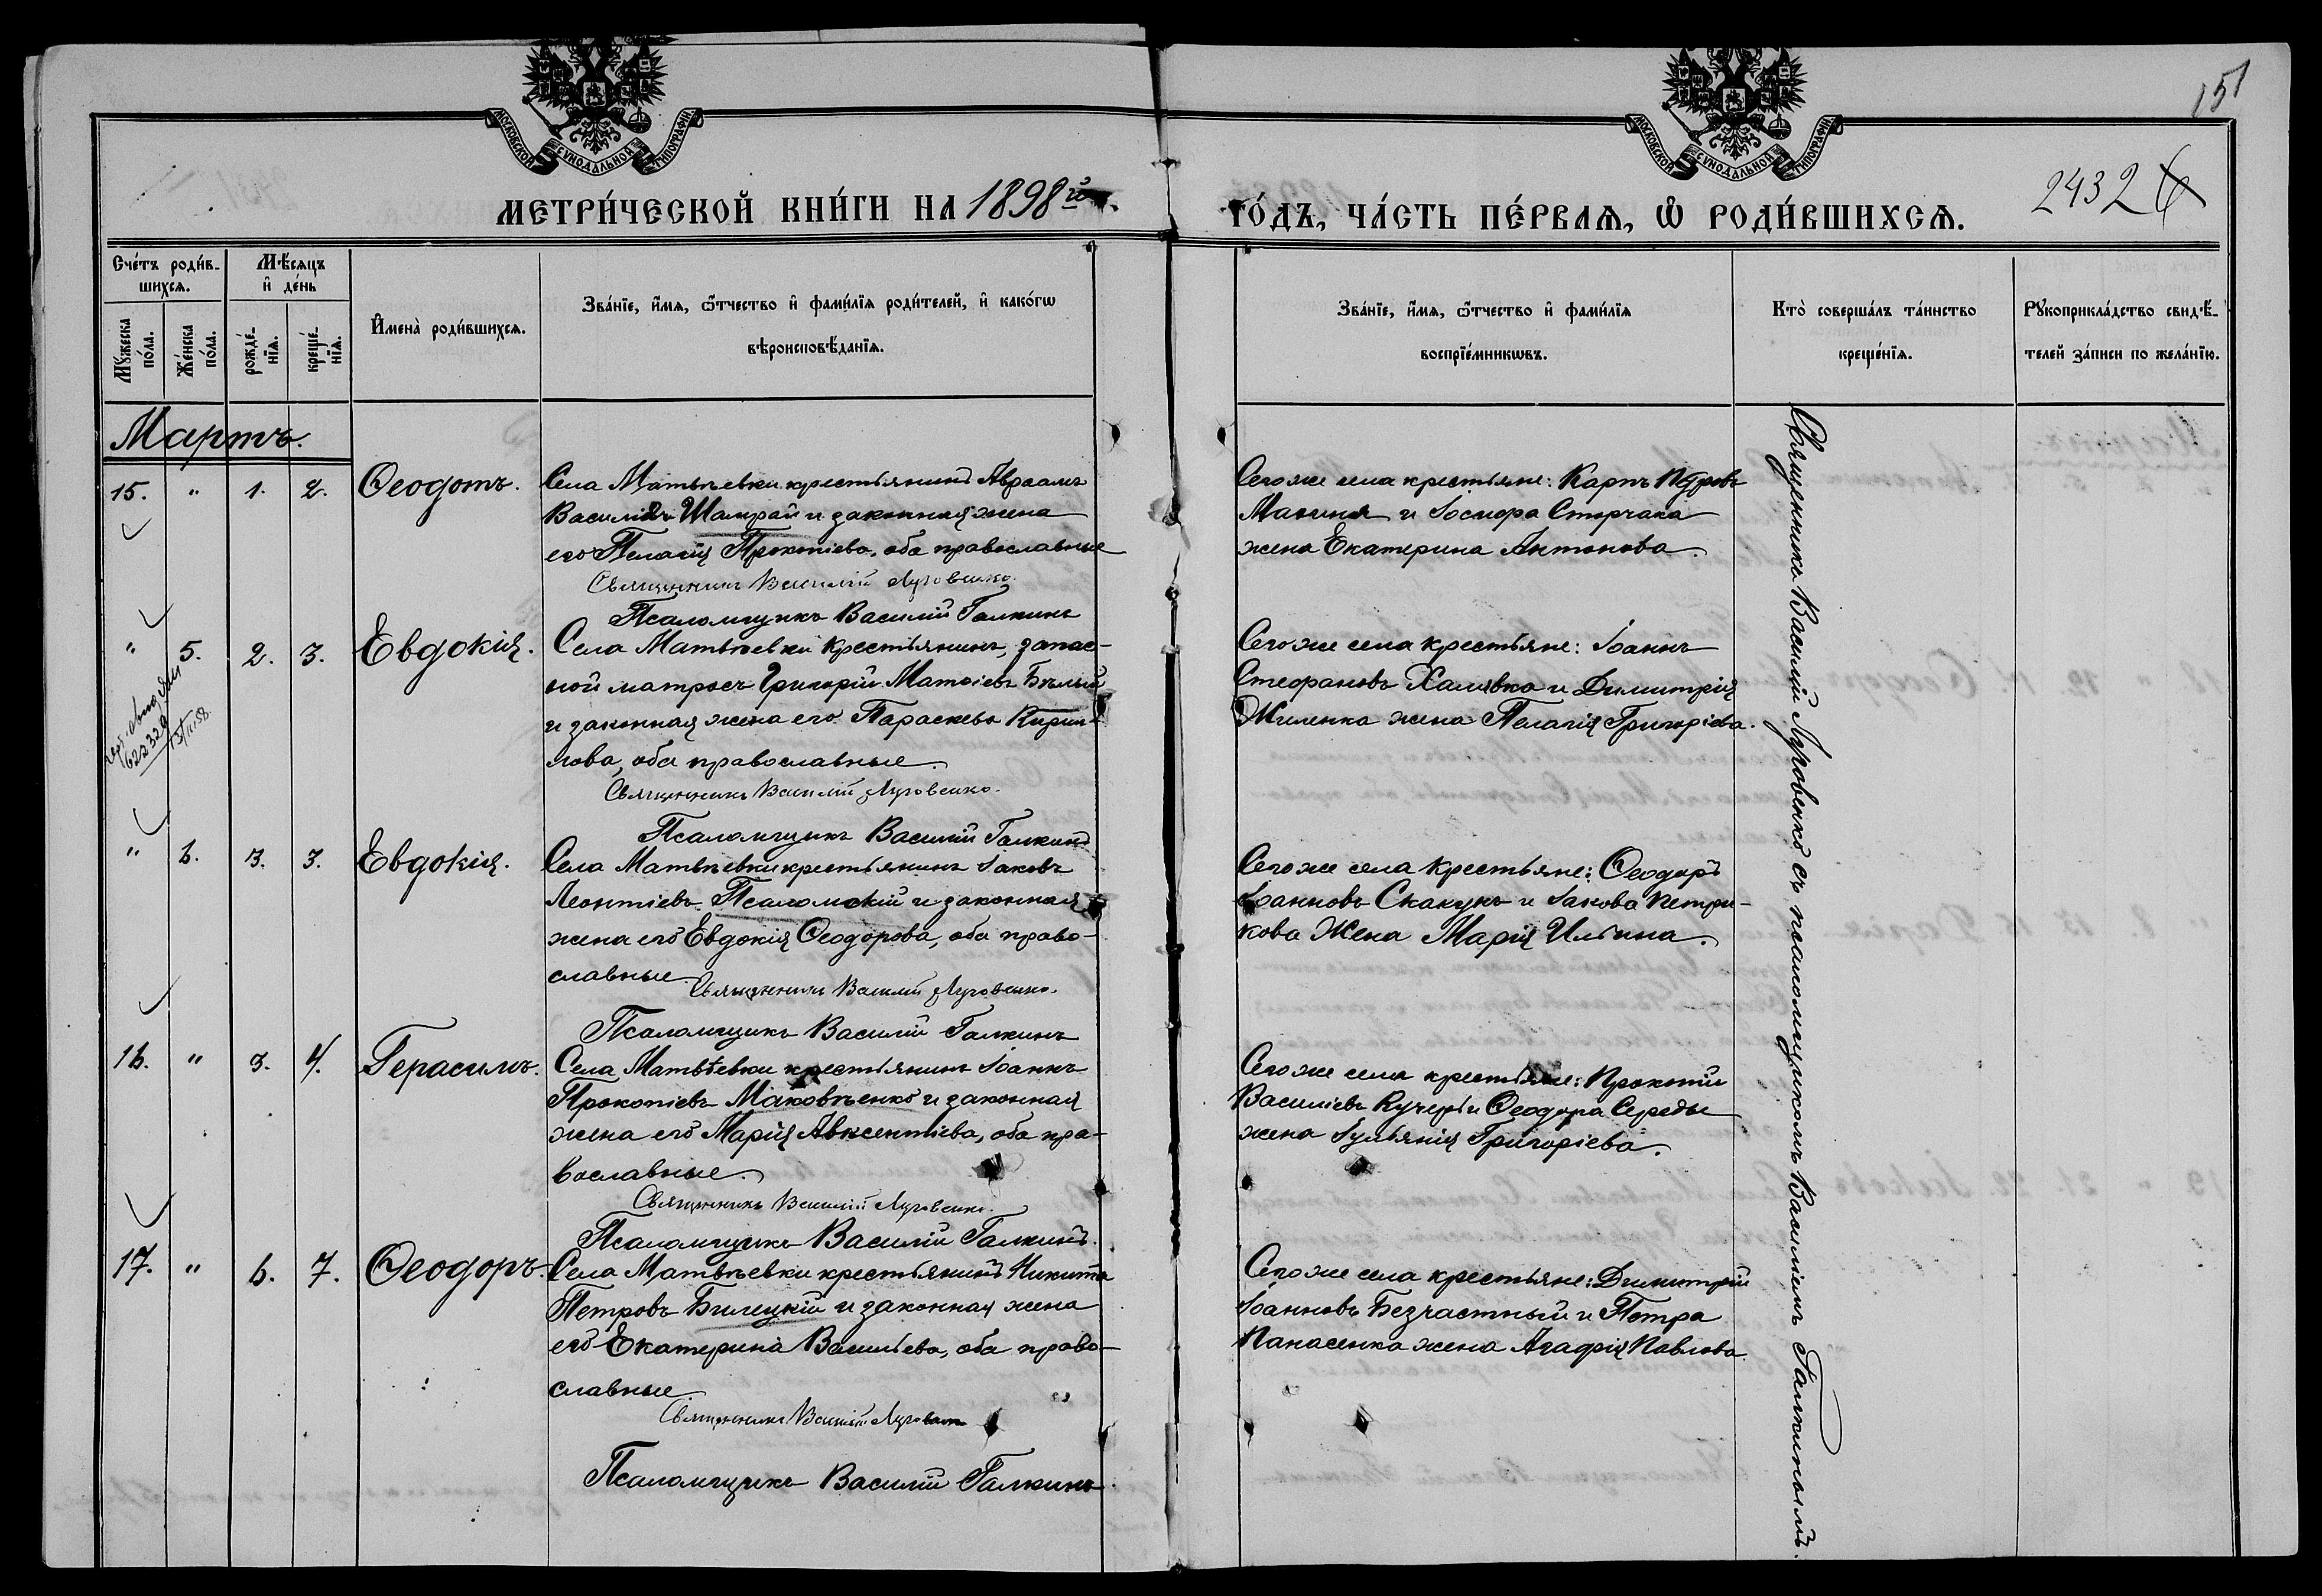 МОСКОВСКОЙ СѴНОДАЛЬНОЙ ТИПОГРАФІИ
МОСКОВСКОЙ СѴНОДАЛЬНОЙ ТИПОГРАФІИ
151
2432
МЕТРИ́ЧЕСКОЙ КНИ́ГИ НА 1898й
ГО́ДЪ, ЧА́СТЬ ПЕ́РВАѦ, Ѽ РОДИ́ВШИХСѦ.
Сче́тъ роди́в-
шихсѧ.
Мѣ́сѧцъ
и҆ де́нь
Мꙋ́жеска
по́ла.
Же́нска
по́ла.
рожде́-
нїѧ.
креще́-
нїѧ.
И҆мена̀ роди́вшихсѧ.
Зва́нїе, и҆́мѧ, ѻ҆́тчество и҆ фами́лїѧ роди́телей, и҆ како́гѡ
вѣроисповѣ́данїѧ.
Зва́нїе, и҆́мѧ, ѻ҆́тчество и҆ фами́лїѧ
воспрїе́мникѡвъ.
Кто̀ соверша́лъ та́инство
креще́нїѧ.
Рꙋкоприкла́дство свидѣ́-
телей за́писи по жела́нїю.
Мартъ.
15. " 1. 2. Ѳеодотъ.
Села Матвѣевки крестьянинъ Авраамъ
Василіевъ Шамрай и законная жена
его Пелагія Прокопіева, оба православные
Священникъ Василій Луговенко.
Псаломщикъ Василій Галкинъ
Сего же села крестьяне: Карпъ Петровъ
и Іосифа Сторчака
жена Екатерина Антонова.
" 5. 2. 3. Евдокія.
622329
Села Матвѣевки крестьянинъ, запас-
ной матросъ Григорій Матѳіевъ Бѣлый
и законная жена его Параскева Кирил-
лова, оба православные.
Священникъ Василій Луговенко.
Псаломщикъ Василій Галкинъ
Сего же села крестьяне: Іоаннъ
Стефановъ Халявка и Димитрія
Жиленка жена Пелагія Григоріева.
" 6. 3. 3. Евдокія.
Села Матвѣевки крестьянинъ Іаковъ
Леонтіевъ Псаломскій и законная
жена его Евдокія Ѳеодорова, оба право-
славные.
Священникъ Василій Луговенко.
Псаломщикъ Василій Галкинъ
Сего же села крестьяне: Ѳеодоръ
Іоанновъ Скакунъ и Іакова Петри-
кова жена Марія Ильина.
16. " 3. 4. Герасимъ.
Села Матвѣевки крестьянинъ Іоаннъ
Прокопіевъ Маковѣенко и законная
жена его Марія Авксентіева, оба пра-
вославные.
Священникъ Василій Луговенко.
Псаломщикъ Василій Галкинъ.
Сего же села крестьяне: Прокопій
Василіевъ Кучеръ и Ѳеодора Середы
жена Іуліанія Григоріева.
17. " 6. 7. Ѳеодоръ.
Села Матвѣевки крестьянинъ Никита
Петровъ Билецкій и законная жена
его Екатерина Васильева, оба право-
славные.
Священникъ Василій
Псаломщикъ Василій Галкинъ
Сего же села крестьяне: Димитрій
Іоанновъ Безчастный и Петра
Панасенка жена Агафія Павлова.
Священникъ Василій Луговенко съ псаломщикомъ Василіемъ Галкинымъ.